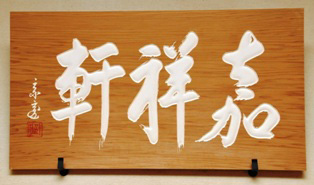 嘉祥軒